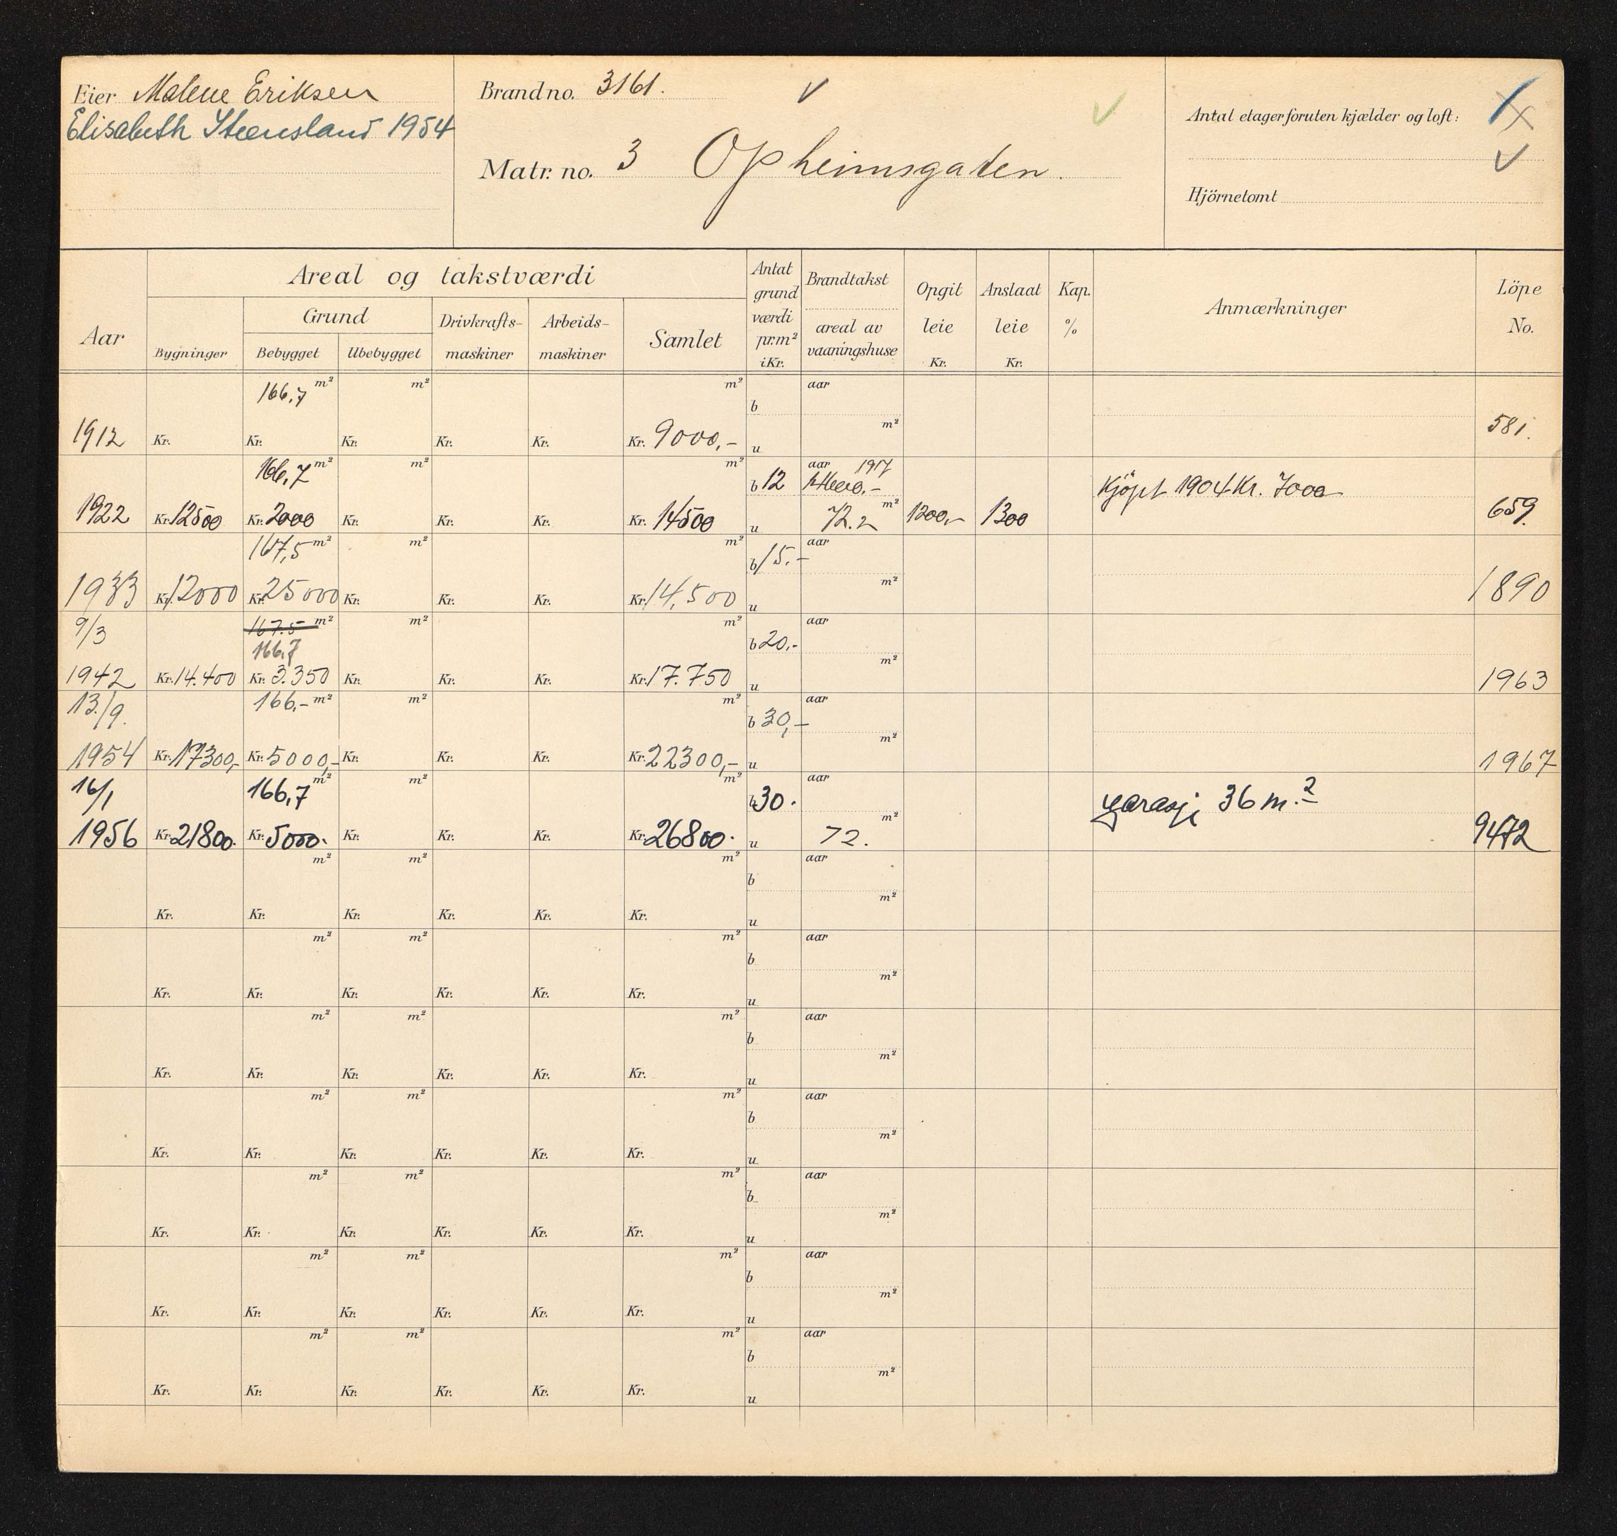 Eier Malene Eriksen
Elisabeth Steensland 1954
Brand no. 3161.
Matr. no. 3 Opheimsgaten.
Antal etager foruten kjælder og loft:
Hjörnetomt
Aar
Areal og takstværdi
Bygninger
Grund
Bebygget
Ubebygget
Drivkrafts-maskiner
Arbeids-maskiner
Samlet
Antat grund værdi pr. m² i Kr.
Brandtakst
areal av vaaningshuse
Opgit leie Kr.
Anslaat leie Kr.
Kap. %
Anmærkninger
Löpe No.
166,7 m² m² m² aar
b
m²
1912 Kr. Kr. Kr. Kr. Kr. Kr. 9000,- u 581.
166,7 m² m² m² b 12 aar 1917
Kjöpt 1904 Kr. 7000
1922 Kr. 12500 Kr. 2000 Kr. Kr. Kr. Kr. 14500 u 72.2 m² 1200,- 1300 659.
167,5 m² m² m² b 15.- aar
m²
1933 Kr. 12000 Kr. 25000 Kr. Kr. Kr. Kr. 14,500 u 1890
9/3 167.5 m² m² m² aar
166,7 b 20,-
m²
1942 Kr. 14.400 Kr. 3.350 Kr. Kr. Kr. Kr. 17.750 u 1963
13./9. 166,- m² m² m² aar
b 30,-
m²
1954 Kr. 17300,- Kr. 5000,- Kr. Kr. Kr. Kr. 22300,- u 1967
16/1 166,7 m² m² m² aar
b 30. garasje 36 m.²
m²
1956 Kr. 21800. Kr. 5000. Kr. Kr. Kr. Kr. 26800. u 72. 9472
m² m² m² aar
b
m²
Kr. Kr. Kr. Kr. Kr. Kr. u
m² m² m² aar
b
m²
Kr. Kr. Kr. Kr. Kr. Kr. u
m² m² m² aar
b
m²
Kr. Kr. Kr. Kr. Kr. Kr. u
m² m² m² aar
b
m²
Kr. Kr. Kr. Kr. Kr. Kr. u
m² m² m² aar
b
m²
Kr. Kr. Kr. Kr. Kr. Kr. u
m² m² m² aar
b
m²
Kr. Kr. Kr. Kr. Kr. Kr. u
m² m² m² aar
b
m²
Kr. Kr. Kr. Kr. Kr. Kr. u